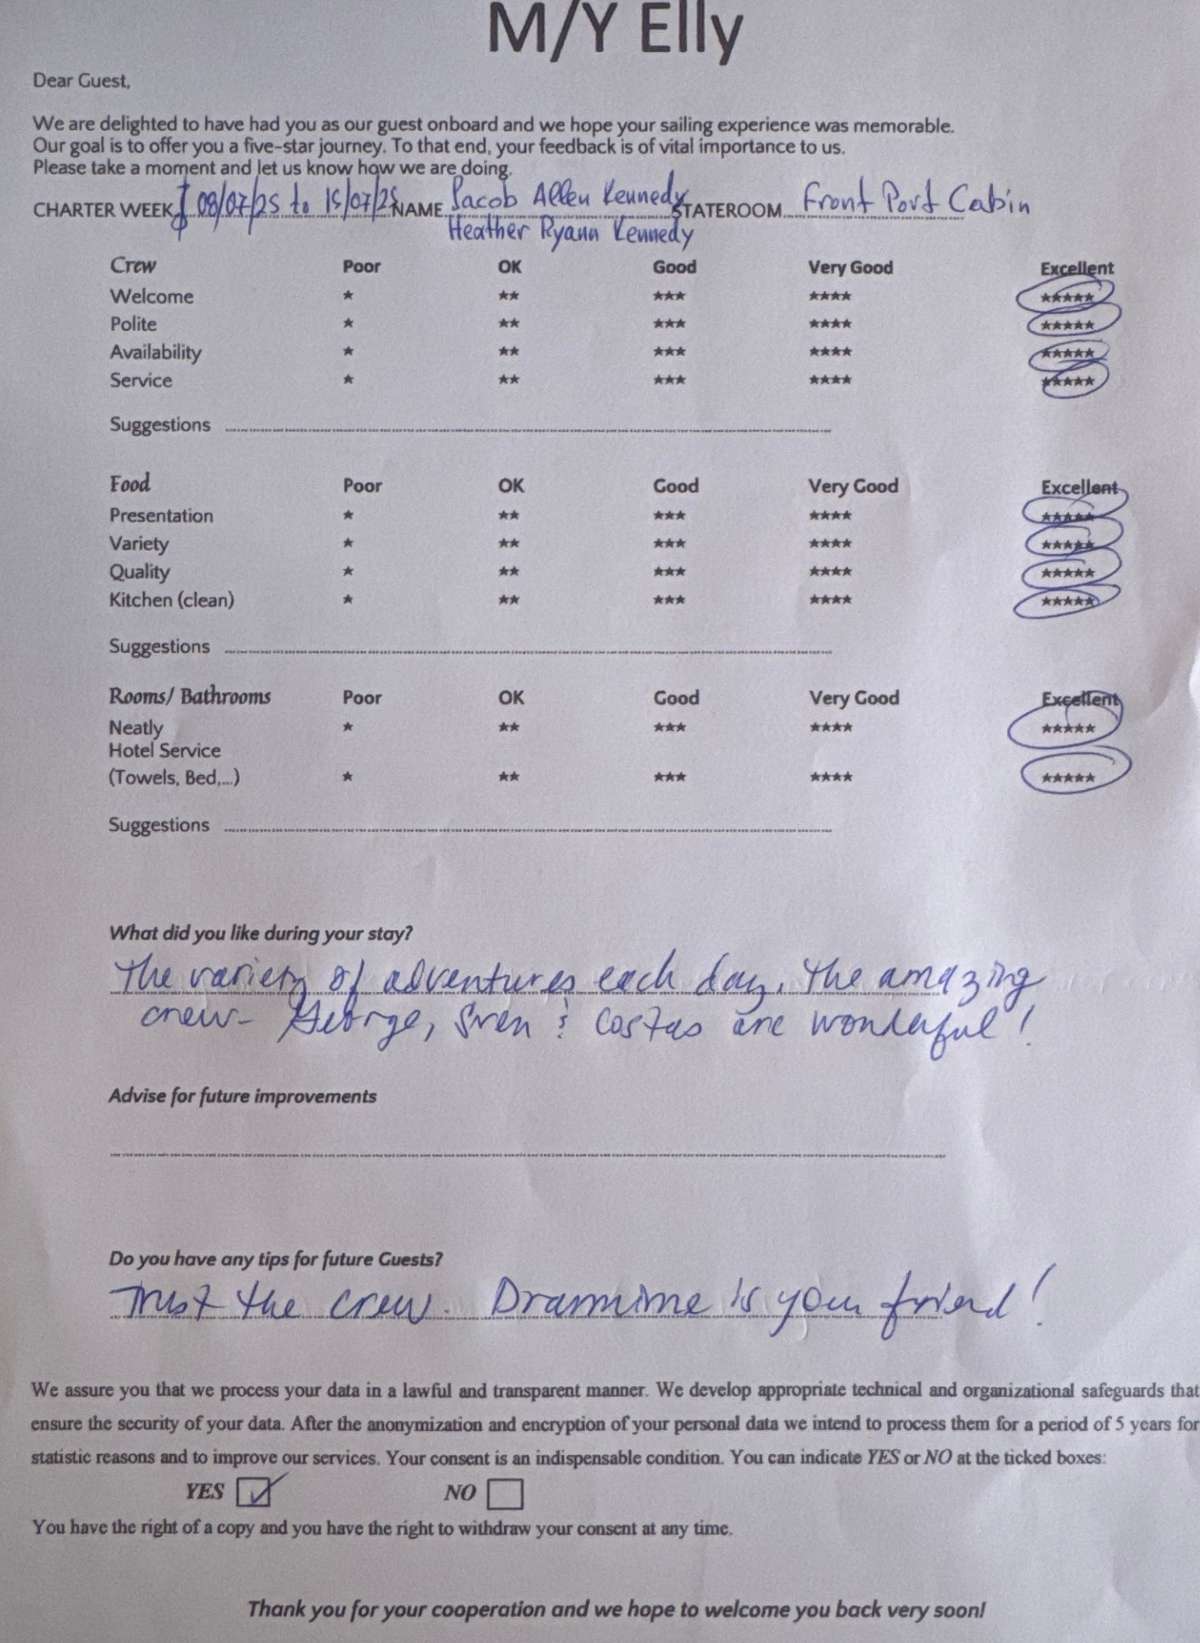 M/Y Elly
Dear Guest,
We are delighted to have had you as our guest onboard and we hope your sailing experience was memorable.
Our goal is to offer you a five-star journey. To that end, your feedback is of vital importance to us.
Please take a moment and let us know how we are doing.
CHARTER WEEK 08/07/25 to 15/07/25 NAME Jacob Allen Kennedy STATEROOM Front Port Cabin
Heather Ryann Kennedy
Crew Poor OK Good Very Good Excellent
Welcome ★ ★★ ★★★ ★★★★ ★★★★★
Polite ★ ★★ ★★★ ★★★★ ★★★★★
Availability ★ ★★ ★★★ ★★★★ ★★★★★
Service ★ ★★ ★★★ ★★★★ ★★★★★
Suggestions
Food Poor OK Good Very Good Excellent
Presentation ★ ★★ ★★★ ★★★★ ★★★★★
Variety ★ ★★ ★★★ ★★★★ ★★★★★
Quality ★ ★★ ★★★ ★★★★ ★★★★★
Kitchen (clean) ★ ★★ ★★★ ★★★★ ★★★★★
Suggestions
Rooms/ Bathrooms Poor OK Good Very Good Excellent
Neatly ★ ★★ ★★★ ★★★★ ★★★★★
Hotel Service
(Towels, Bed,...) ★ ★★ ★★★ ★★★★ ★★★★★
Suggestions
What did you like during your stay?
The variety of adventures each day. The amazing
crew- George, Sven & Costas are wonderful!
Advise for future improvements
Do you have any tips for future Guests?
Trust the crew. Dramime is your friend!
We assure you that we process your data in a lawful and transparent manner. We develop appropriate technical and organizational safeguards that
ensure the security of your data. After the anonymization and encryption of your personal data we intend to process them for a period of 5 years for
statistic reasons and to improve our services. Your consent is an indispensable condition. You can indicate YES or NO at the ticked boxes:
YES NO
You have the right of a copy and you have the right to withdraw your consent at any time.
Thank you for your cooperation and we hope to welcome you back very soon!